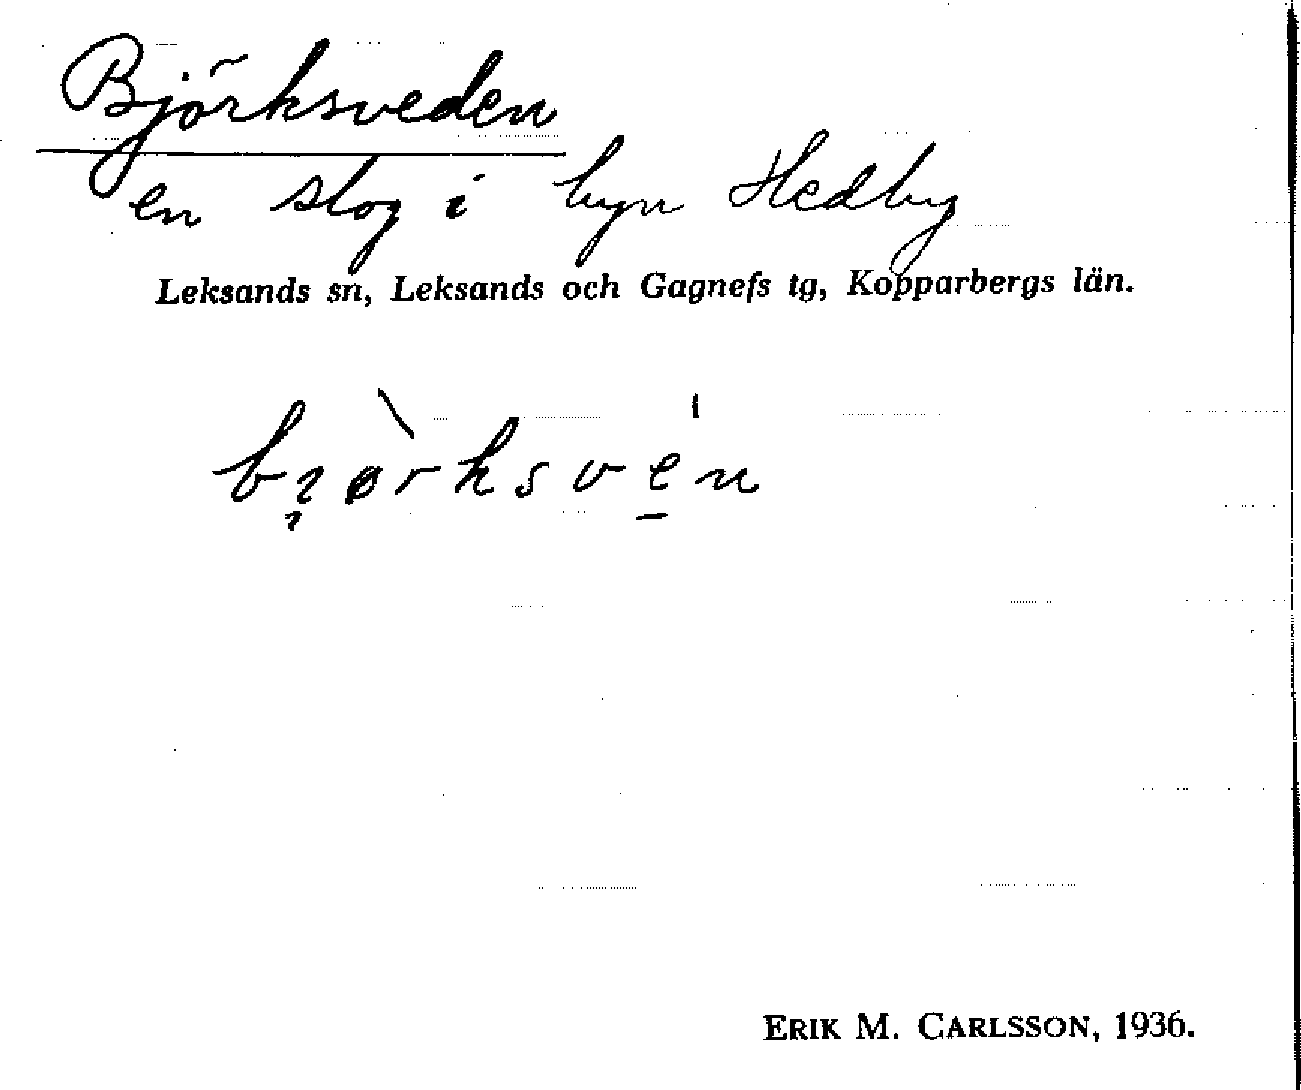 Björksveden
en slog i byn Hedby
Leksands sn, Leksands och Gagnefs tg, Kopparbergs län.
ERIK M. CARLSSON, 1936.